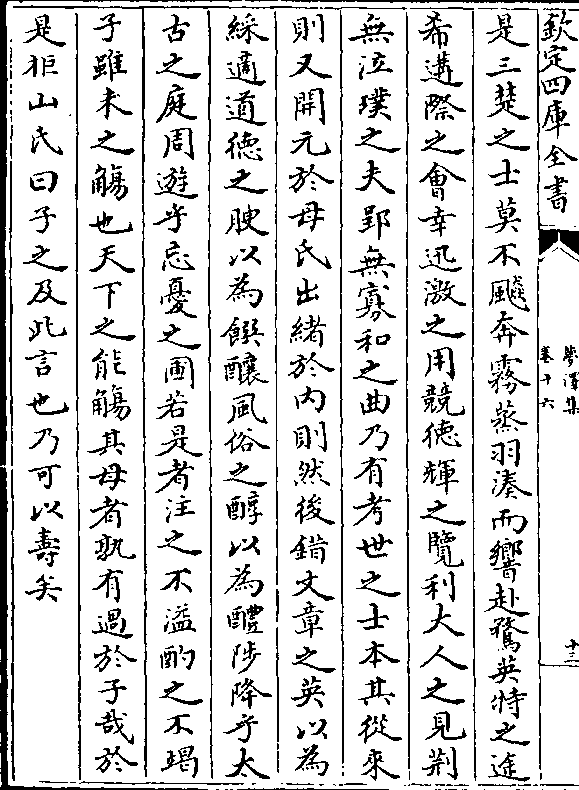 欽定四庫全書
夢澤集
卷十六
十二
是三楚之士莫不飇奔霧蒸羽湊而響赴騖英特之途
希遘際之會幸迅激之用競德輝之覽利大人之見荆
無泣璞之夫郢無寡和之曲乃有考世之士本其從來
則又開元於母氏出緒於内則然後錯文章之英以為
綵適道德之腴以為饌釀風俗之醇以為醴陟降乎太
古之庭周遊乎忘憂之圃若是者注之不溢酌之不竭
子雖未之觴也天下之能觴其母者孰有過於子哉於
是狉山氏曰子之及此言也乃可以壽矣